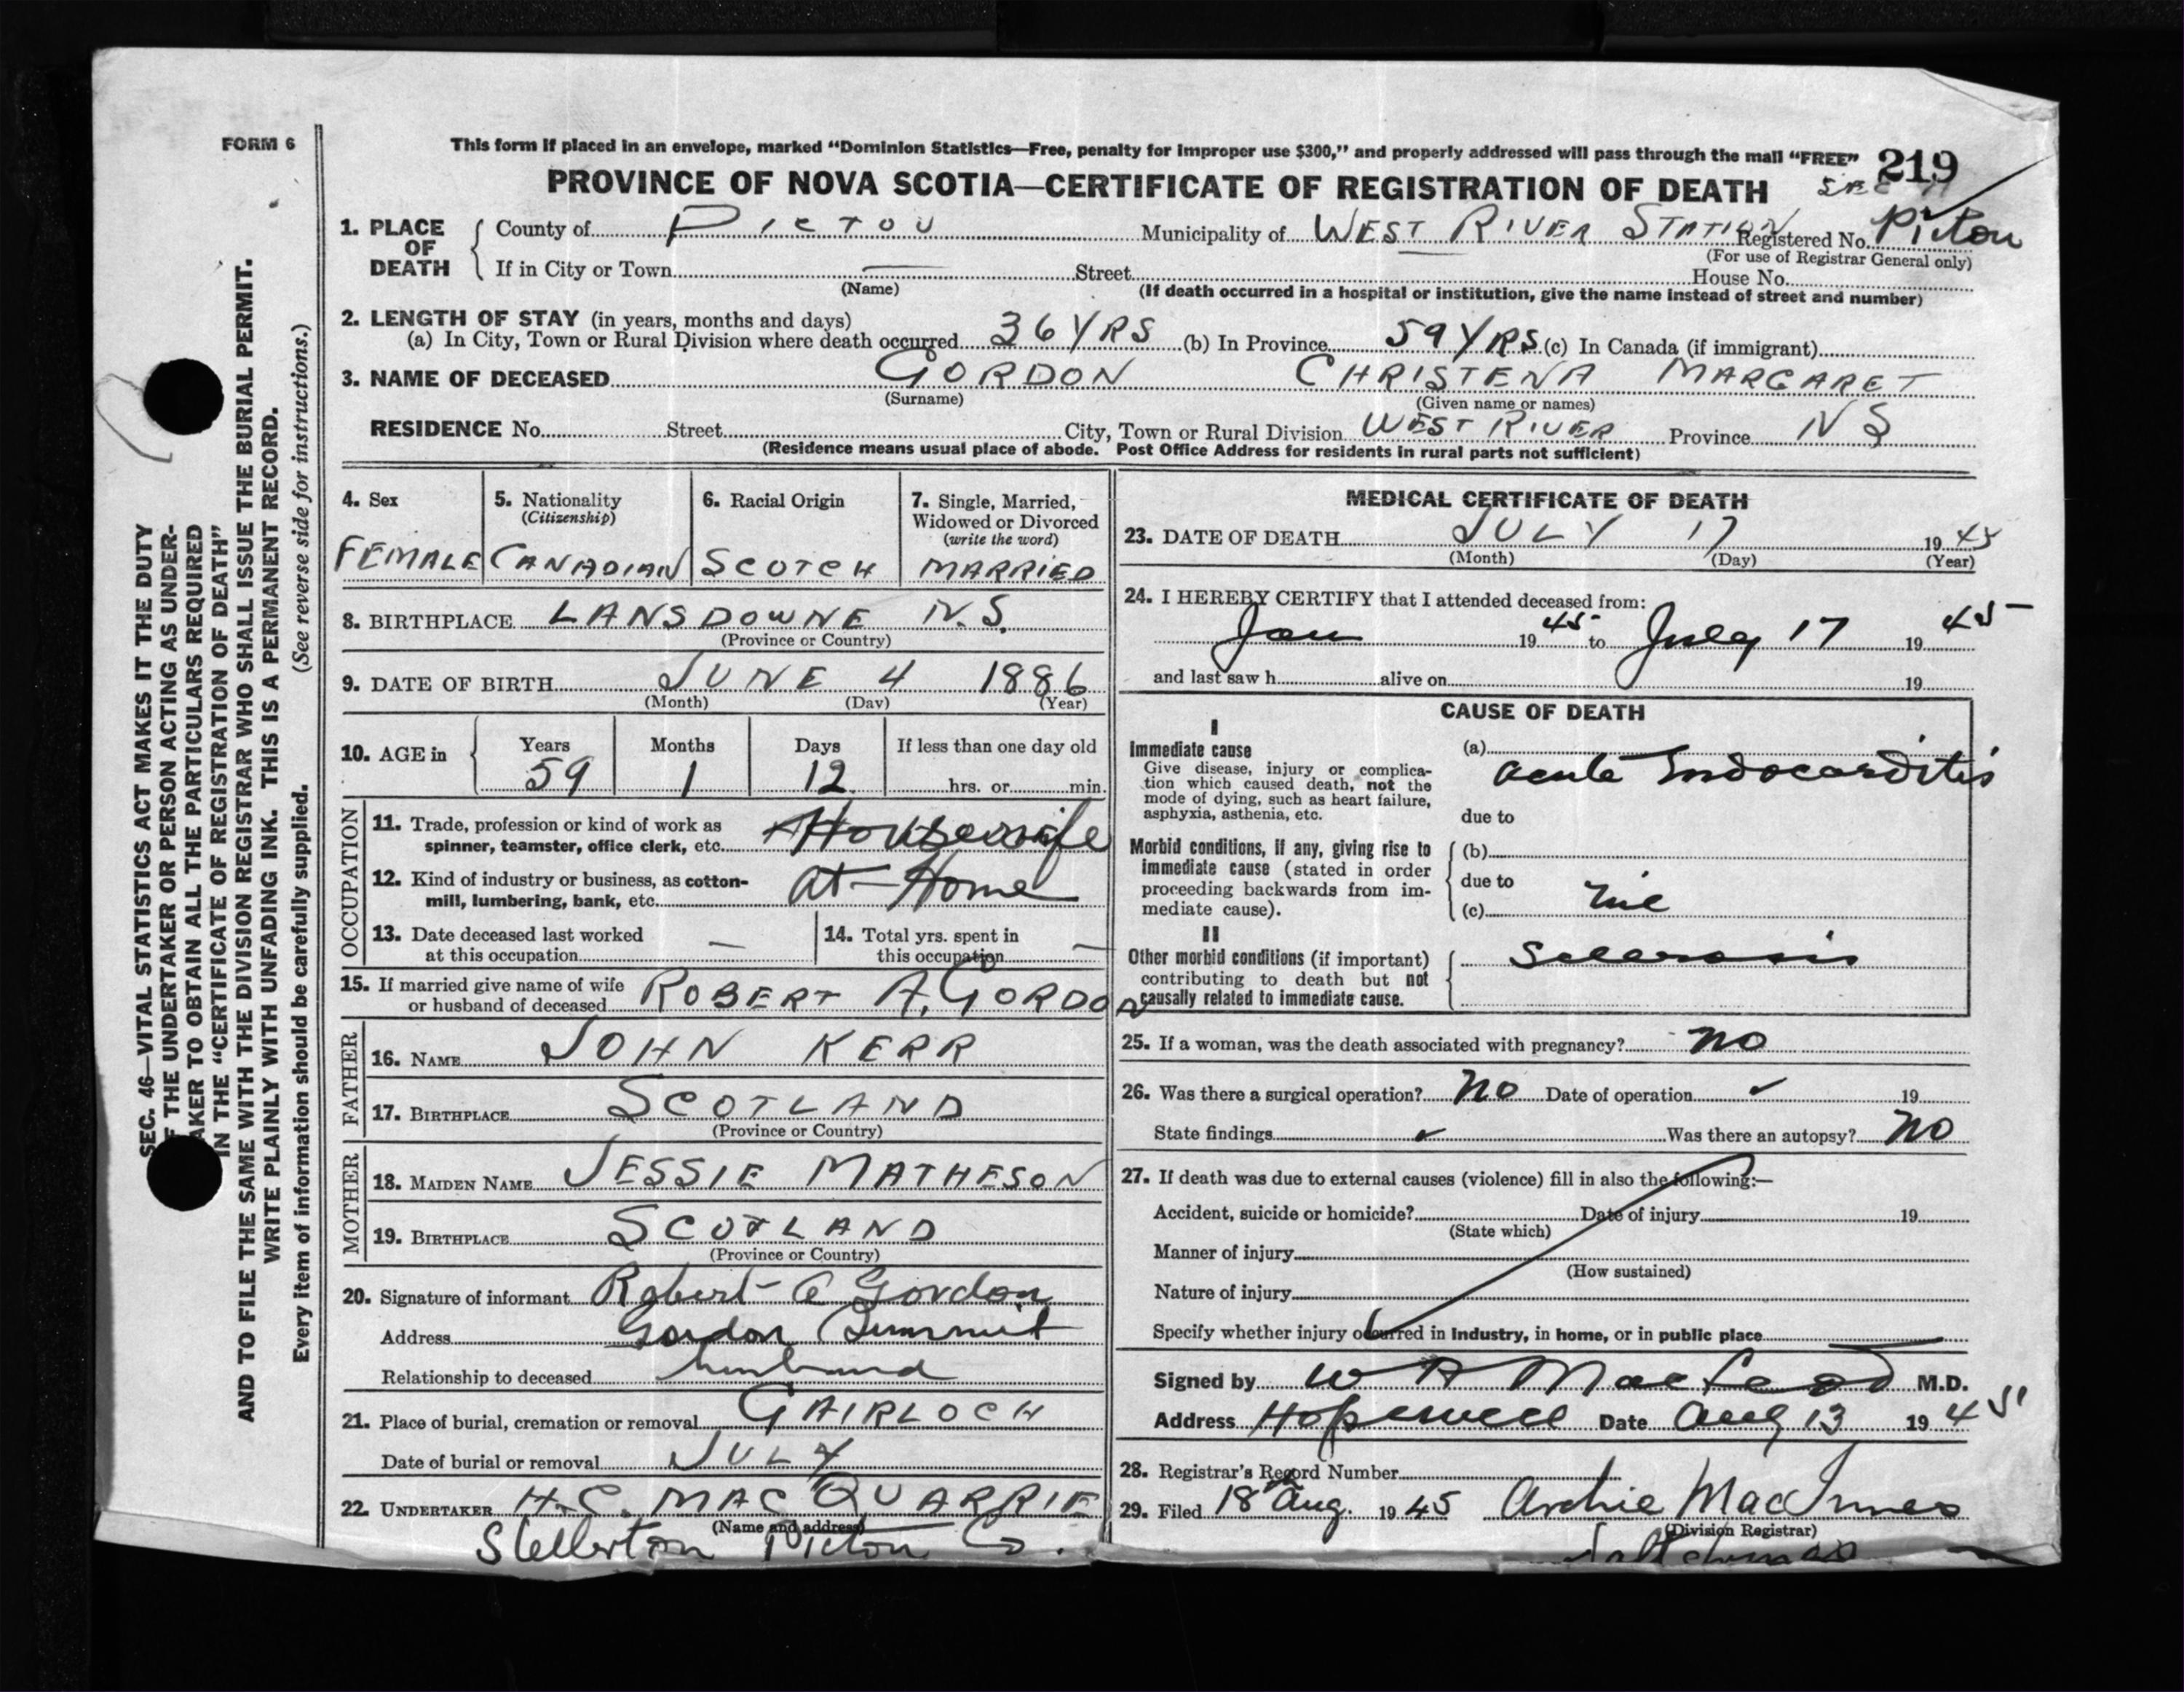 FORM 6
This form if placed in an envelope, marked "Dominion Statistics—Free, penalty for improper use $300," and properly addressed will pass through the mail "FREE"
219
PROVINCE OF NOVA SCOTIA—CERTIFICATE OF REGISTRATION OF DEATH
1. PLACE OF DEATH
County of PICTOU Municipality of WEST RIVER STATION Registered No. Pictou
(For use of Registrar General only)
If in City or Town — Street House No.
(Name)
(If death occurred in a hospital or institution, give the name instead of street and number)
2. LENGTH OF STAY (in years, months and days)
(a) In City, Town or Rural Division where death occurred 36 YRS (b) In Province 59 YRS (c) In Canada (if immigrant)
3. NAME OF DECEASED GORDON CHRISTENA MARGARET
(Surname) (Given name or names)
RESIDENCE No. Street City, Town or Rural Division WEST RIVER Province N S
(Residence means usual place of abode. Post Office Address for residents in rural parts not sufficient)
4. Sex
FEMALE
5. Nationality
(Citizenship)
CANADIAN
6. Racial Origin
SCOTCH
7. Single, Married,
Widowed or Divorced
(write the word)
MARRIED
8. BIRTHPLACE LANSDOWNE N.S.
(Province or Country)
9. DATE OF BIRTH JUNE 4 1886
(Month) (Day) (Year)
10. AGE in
Years Months Days If less than one day old
59 1 12 hrs. or min.
OCCUPATION
11. Trade, profession or kind of work as
spinner, teamster, office clerk, etc. Housewife
12. Kind of industry or business, as cotton-
mill, lumbering, bank, etc. at-Home
13. Date deceased last worked
at this occupation —
14. Total yrs. spent in
this occupation —
15. If married give name of wife
or husband of deceased ROBERT A. GORDON
FATHER
16. NAME JOHN KERR
17. BIRTHPLACE SCOTLAND
(Province or Country)
MOTHER
18. MAIDEN NAME JESSIE MATHESON
19. BIRTHPLACE SCOTLAND
(Province or Country)
20. Signature of informant Robert A Gordon
Address Gordon Summit
Relationship to deceased husband
21. Place of burial, cremation or removal GAIRLOCH
Date of burial or removal JULY
22. UNDERTAKER H.C. MACQUARRIE
(Name and address)
Stellerton Pictou Co.
MEDICAL CERTIFICATE OF DEATH
23. DATE OF DEATH JULY 17 1945
(Month) (Day) (Year)
24. I HEREBY CERTIFY that I attended deceased from:
Jan 1945 to July 17 1945
and last saw h alive on 19
CAUSE OF DEATH
I
Immediate cause
Give disease, injury or complica-
tion which caused death, not the
mode of dying, such as heart failure,
asphyxia, asthenia, etc.
(a) acute Endocarditis
due to
Morbid conditions, if any, giving rise to
immediate cause (stated in order
proceeding backwards from im-
mediate cause).
(b)
due to
(c) nil
II
Other morbid conditions (if important)
contributing to death but not
causally related to immediate cause.
Sclerosis
25. If a woman, was the death associated with pregnancy? No
26. Was there a surgical operation? No Date of operation 19
State findings Was there an autopsy? No
27. If death was due to external causes (violence) fill in also the following:—
Accident, suicide or homicide? Date of injury 19
(State which)
Manner of injury
(How sustained)
Nature of injury
Specify whether injury occurred in industry, in home, or in public place
Signed by W A MacLeod M.D.
Address Hopewell Date Aug 13 1945
28. Registrar's Record Number
29. Filed 18th Aug. 1945 Archie MacInnes
(Division Registrar)
SEC. 46—VITAL STATISTICS ACT MAKES IT THE DUTY
THE UNDERTAKER OR PERSON ACTING AS UNDER-
AKER TO OBTAIN ALL THE PARTICULARS REQUIRED
IN THE "CERTIFICATE OF REGISTRATION OF DEATH"
AND TO FILE THE SAME WITH THE DIVISION REGISTRAR WHO SHALL ISSUE THE BURIAL PERMIT.
WRITE PLAINLY WITH UNFADING INK. THIS IS A PERMANENT RECORD.
Every item of information should be carefully supplied. (See reverse side for instructions.)